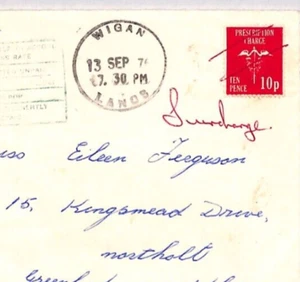 WIGAN
13 SEP 7
7. 30 PM
LANCS
PRESCRIPTION
CHARGE
TEN
PENCE
10p
Surcharge.
Eileen Ferguson
15, Kingsmead Drive,
northolt